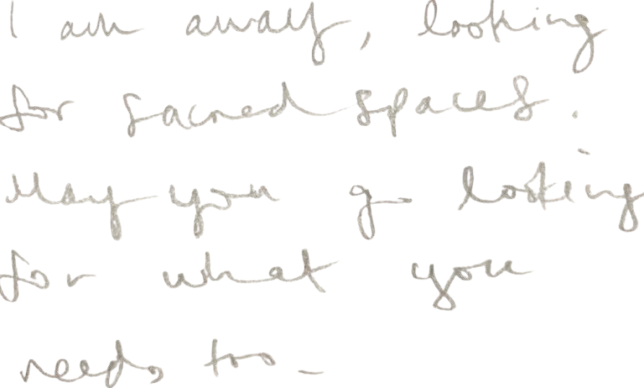 I am away, looking
for sacred spaces.
May you go looking
for what you
need, too -